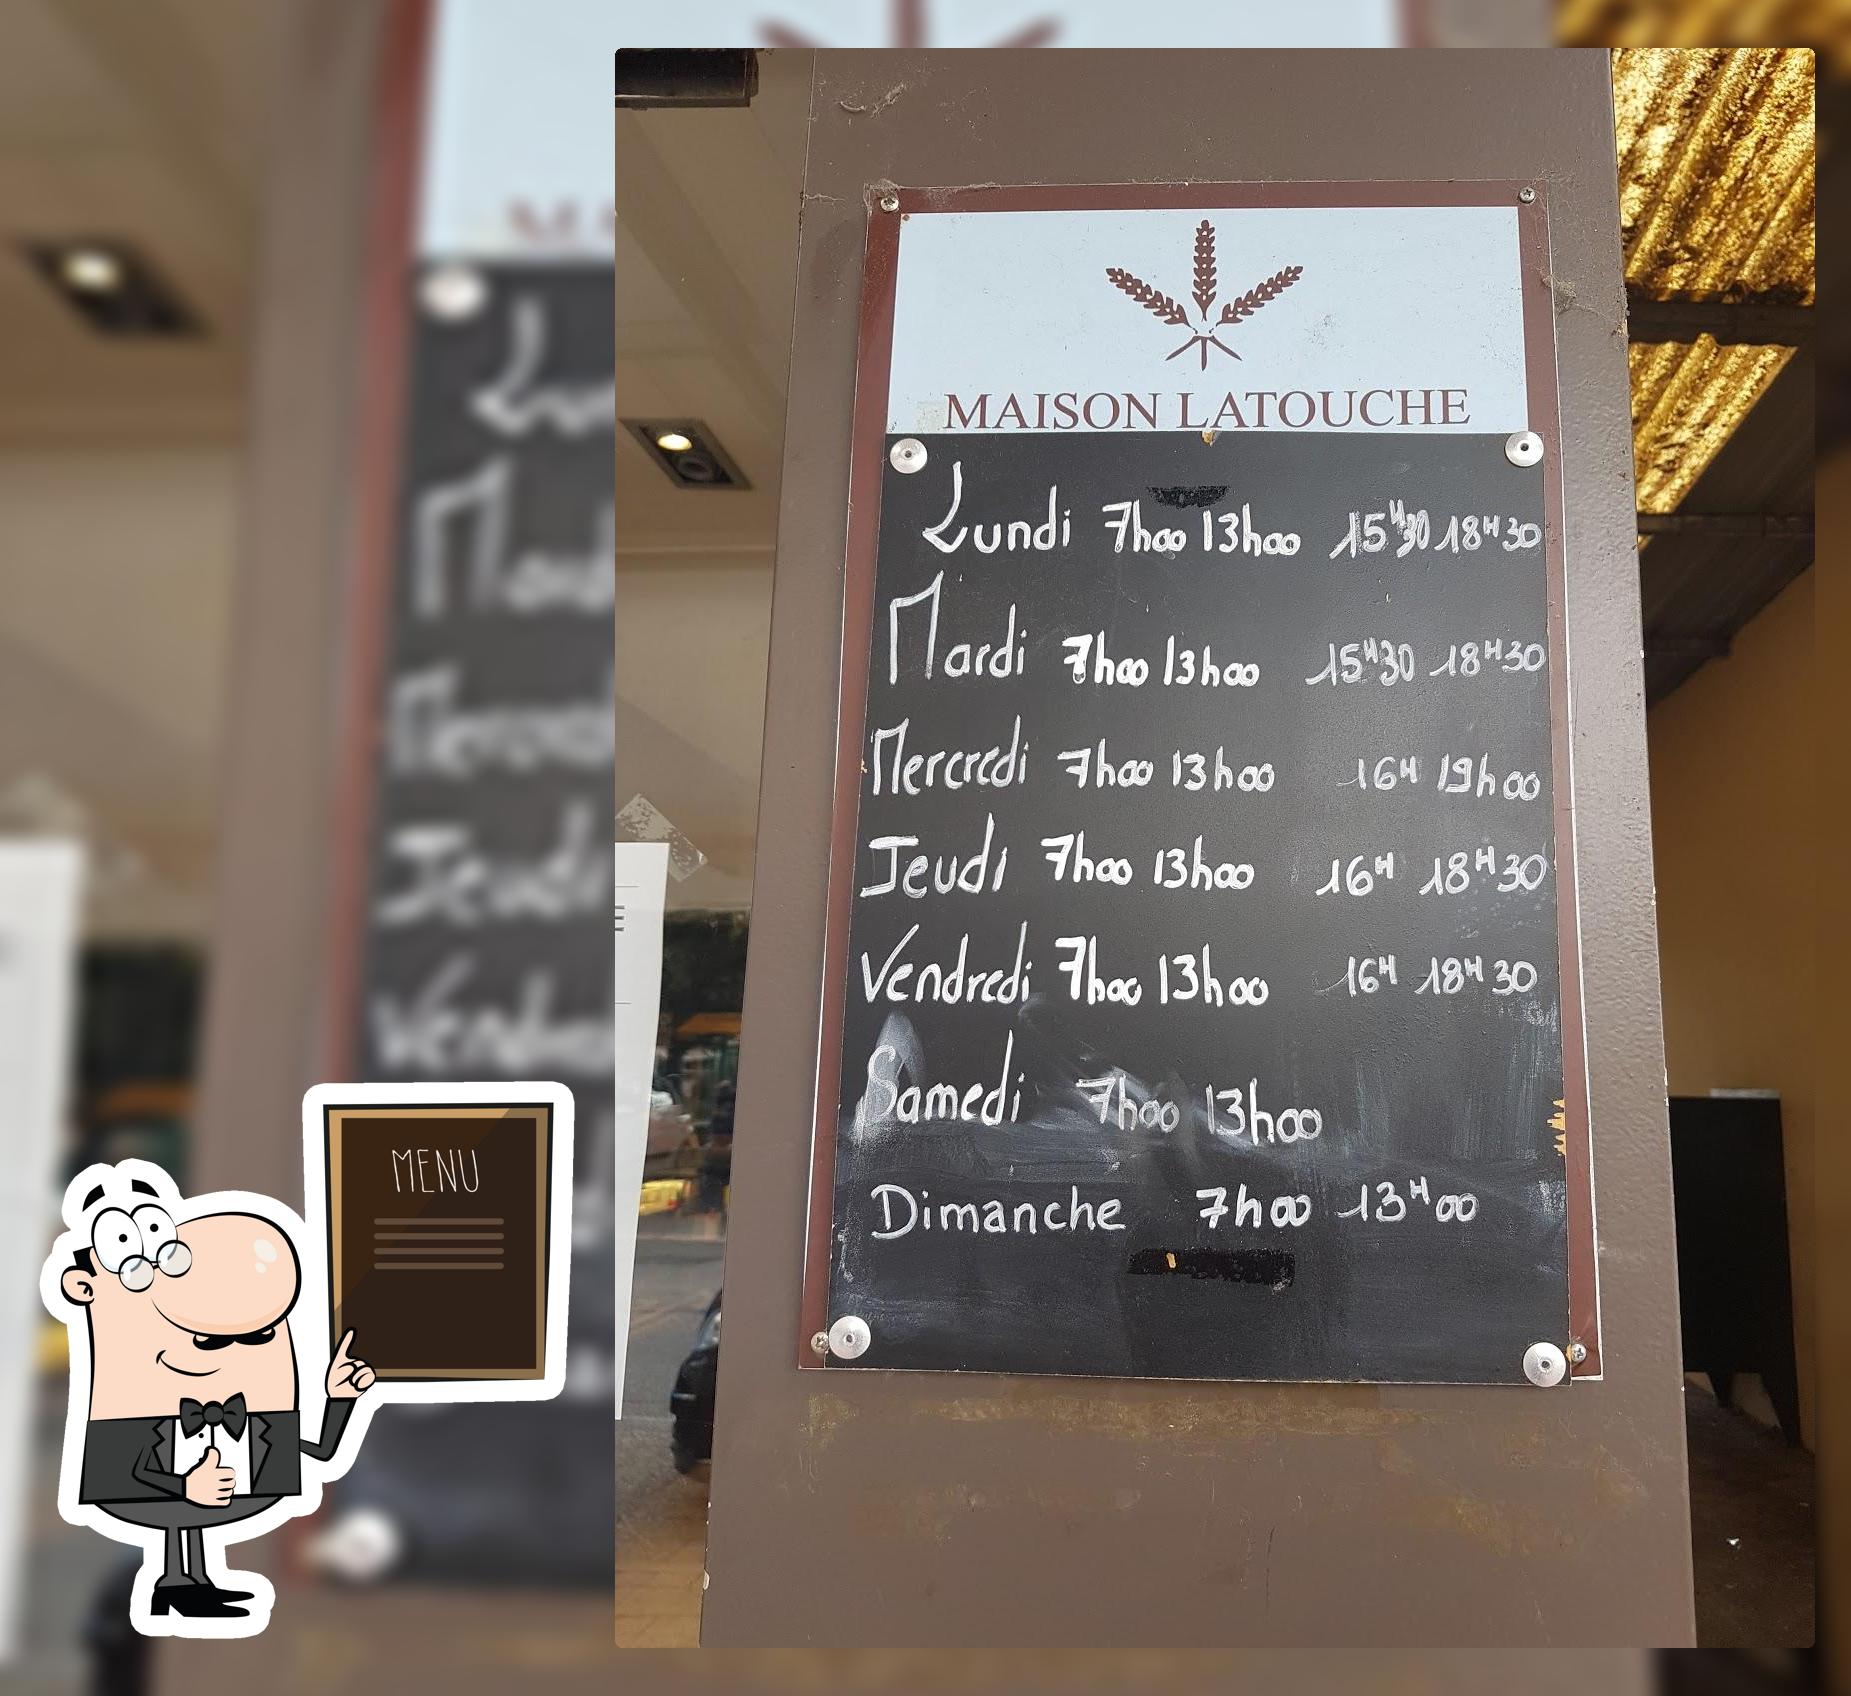 MAISON LATOUCHE
Lundi 7h00 13h00 15H30 18H30
Mardi 7h00 13h00 15H30 18H30
Mercredi 7h00 13h00 16H 19h00
Jeudi 7h00 13h00 16H 18H30
Vendredi 7h00 13h00 16H 18H30
Samedi 7h00 13h00
Dimanche 7h00 13H00
MENU